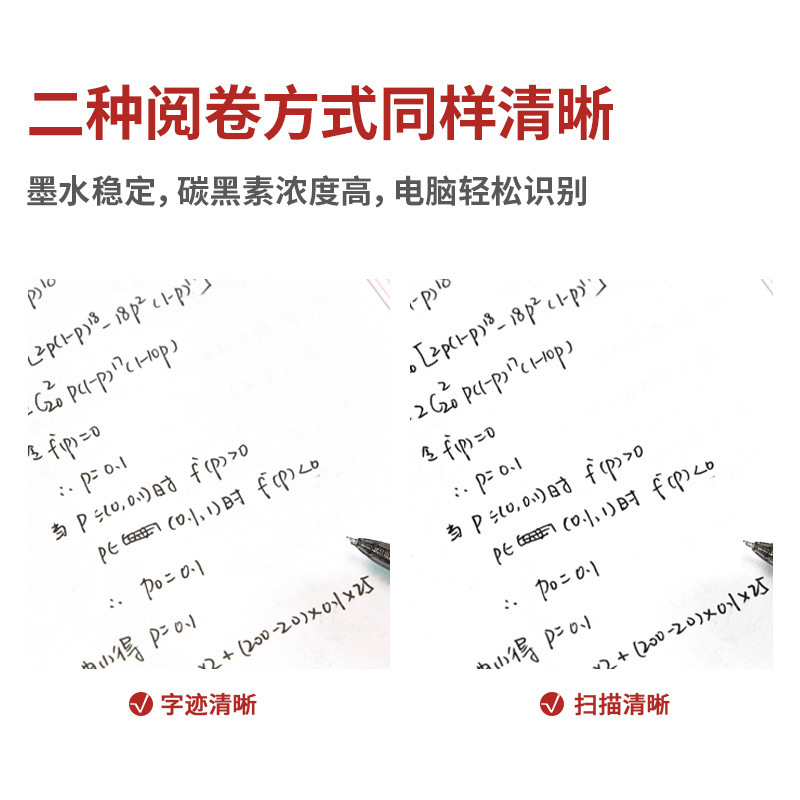 二种阅卷方式同样清晰
墨水稳定，碳黑素浓度高，电脑轻松识别
[2p(1-p)¹⁸-18p²(1-p)¹⁷]
C²₂₀ p(1-p)¹⁷(1-10p)
f'(p)=0
∴ p=0.1
当 p=(0,0.1)时 f'(p)>0
p∈ (0.1,1)时 f'(p)<0
∴ p₀=0.1
得 p=0.1
×2+(200-20)×0.1×25
字迹清晰
[2p(1-p)¹⁸-18p²(1-p)¹⁷]
2C²₂₀ p(1-p)¹⁷(1-10p)
f'(p)=0
∴ p=0.1
当 p=(0,0.1)时 f'(p)>0
p∈ (0.1,1)时 f'(p)<0
∴ p₀=0.1
得 p=0.1
×2+(200-20)×0.1×25
扫描清晰